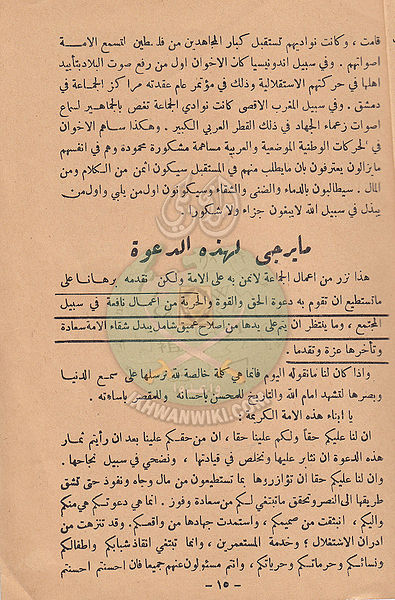 قامت ، وكانت نواديهم تستقبل كبار المجاهدين من فلسطين لتسمع الامة
اصواتهم . وفي سبيل اندونيسيا كان الاخوان اول من رفع صوت البلاد بتأييد
اهلها في حركتهم الاستقلالية وذلك في مؤتمر عام عقدته مراكز الجماعة في
دمشق . وفي سبيل المغرب الاقصى كانت نوادي الجماعة تغص بالجماهير لسماع
اصوات زعماء الجهاد في ذلك القطر العربي الكبير . وهكذا ساهم الاخوان
في الحركات الوطنية الموضعية والعربية مساهمة مشكورة محمودة وهم في انفسهم
مايزالون يعترفون بان مايطلب منهم في المستقبل سيكون اثمن من الكلام ومن
المال . سيطالبون بالدماء والضنى والشقاء وسيكونون اول من يلبي واول من
يبذل في سبيل الله لايبغون جزاء ولا شكورا .
مايرجى لهذه الدعوة
هذا نزر من اعمال الجماعة لانمن به على الامة ولكن نقدمه برهانا على
ماتستطيع ان تقوم به دعوة الحق والقوة والحرية من اعمال نافعة في سبيل
المجتمع ، وما ينتظر ان يتم على يدها من اصلاح عميق شامل يبدل شقاء الامة سعادة
وتأخرها عزة وتقدما .
واذا كان لنا مانقوله اليوم فانما هي كلمة خالصة لله نرسلها على سمع الدنيا
وبصرها لتشهد امام الله والتاريخ للمحسن باحسانه وللمقصر باساءته .
يا ابناء هذه الامة الكريمة :
ان لنا عليكم حقاً ولكم علينا حقا ، ان من حقكم علينا بعد ان رأيتم ثمار
هذه الدعوة ان نثابر عليها ونخلص في قيادتها ، ونضحي في سبيل نجاحها .
وان لنا عليكم حقا ان تؤازروها بما تستطيعون من مال وجاه ونفوذ حتى تشق
طريقها الى النصر وتحقق ماتبتغي لكم من سعادة وفوز . انما هي دعوتكم هي منكم
واليكم ، انبثقت من صميمكم ، واستمدت جهادها من واقعكم . وقد تنزهت من
ادران الاستغلال ؛ وخدمة المستعمرين ، وانما تبتغي انقاذ شبابكم واطفالكم
ونسائكم وحرماتكم وحرياتكم ، وانتم مسئولون عنهم جميعا فان احسنتم احسنتم
- ١٥ -
IKHWANWIKI.COM